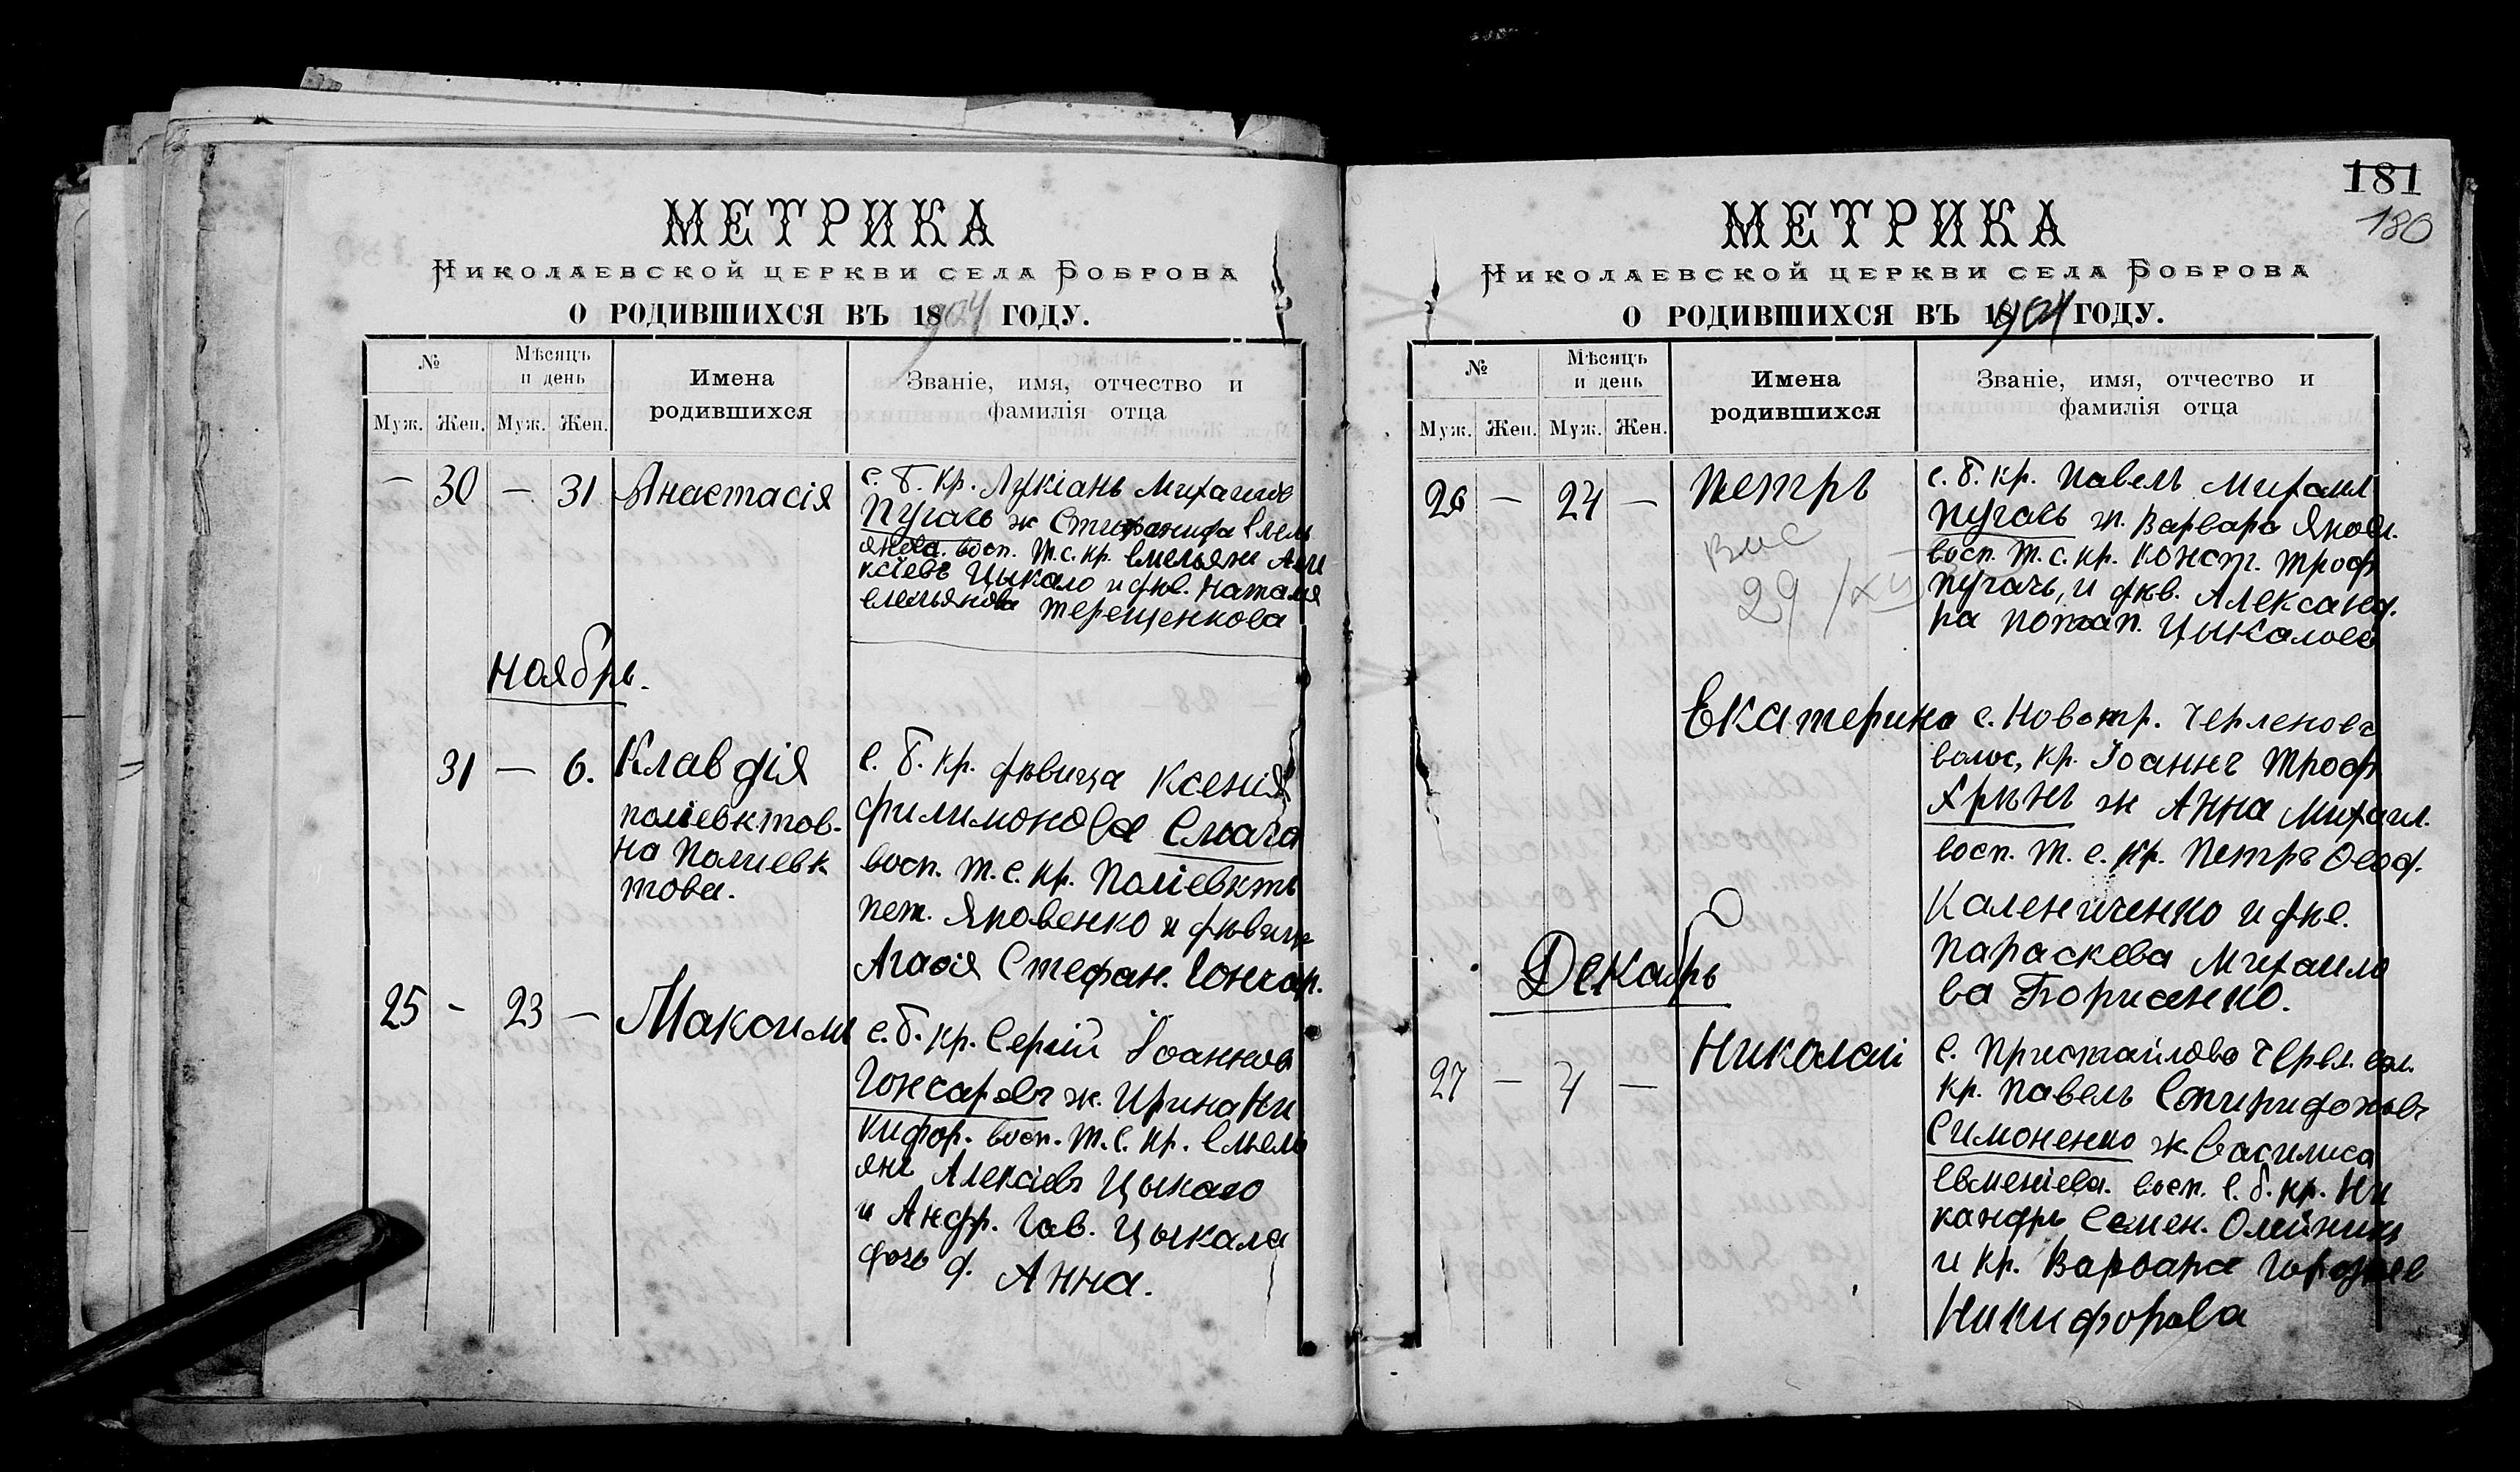 МЕТРИКА
Николаевской церкви села Боброва
О РОДИВШИХСЯ ВЪ 1904 ГОДУ.
№
Мѣсяцъ и день
Имена родившихся
Званіе, имя, отчество и фамилія отца
Муж. Жен. Муж. Жен.
— 30 — 31 Анастасія
с. б. кр. Лукіанъ Михаилов
Пугачъ ж Стефанида Емель
янова. восп. т. с. кр. Емельян Але
ксіевъ Цыкало и дѣв. Наталія
Емельянова Терещенкова
Ноябрь.
31 — 6. Клавдія
поліевктов-
на Полиевк
това.
с. б. кр. дѣвица Ксенія
Филимонова
восп. т. с. кр. Поліевктъ
Пет. Яковенко и дѣвица
Агафія Стефан. Гончар.
25 - 23 — Максимъ
с. б. кр. Сергій Іоаннов
Гончаровъ ж. Ирина Ни
кифор. восп. т. с. кр. Емель
янъ Алексіевъ Цыкало
и Андр. Гав. Цыкала
дочь д. Анна.
181
180
МЕТРИКА
Николаевской церкви села Боброва
О РОДИВШИХСЯ ВЪ 1904 ГОДУ.
№
Мѣсяцъ и день
Имена родившихся
Званіе, имя, отчество и фамилія отца
Муж. Жен. Муж. Жен.
26 — 24 — Петръ
29/XII
с. б. кр. Павелъ Михаил
Пугачъ ж. Варвара Яковл.
восп. т. с. кр. Конст. Троф
Пугачъ, и дѣв. Александ.
ра Потап. Цыкалова
Екатерина
с. Новотр. Черленов
волос, кр. Іоаннъ Троф
Хрѣнъ ж Анна Михаил.
восп. т. с. кр. Петръ Ѳеод.
Калениченко и дѣв.
Параскева Михаило
ва Борисенко.
Декабрь
27 — 4 — Николай
с. Пристайлова Черл. вол.
кр. Павелъ Спиридоновъ
Симоненко ж Василиса
Евменіева. восп. с. б. кр. Ни
кандръ Семен. Олейникъ
и кр. Варвара
Никифорова